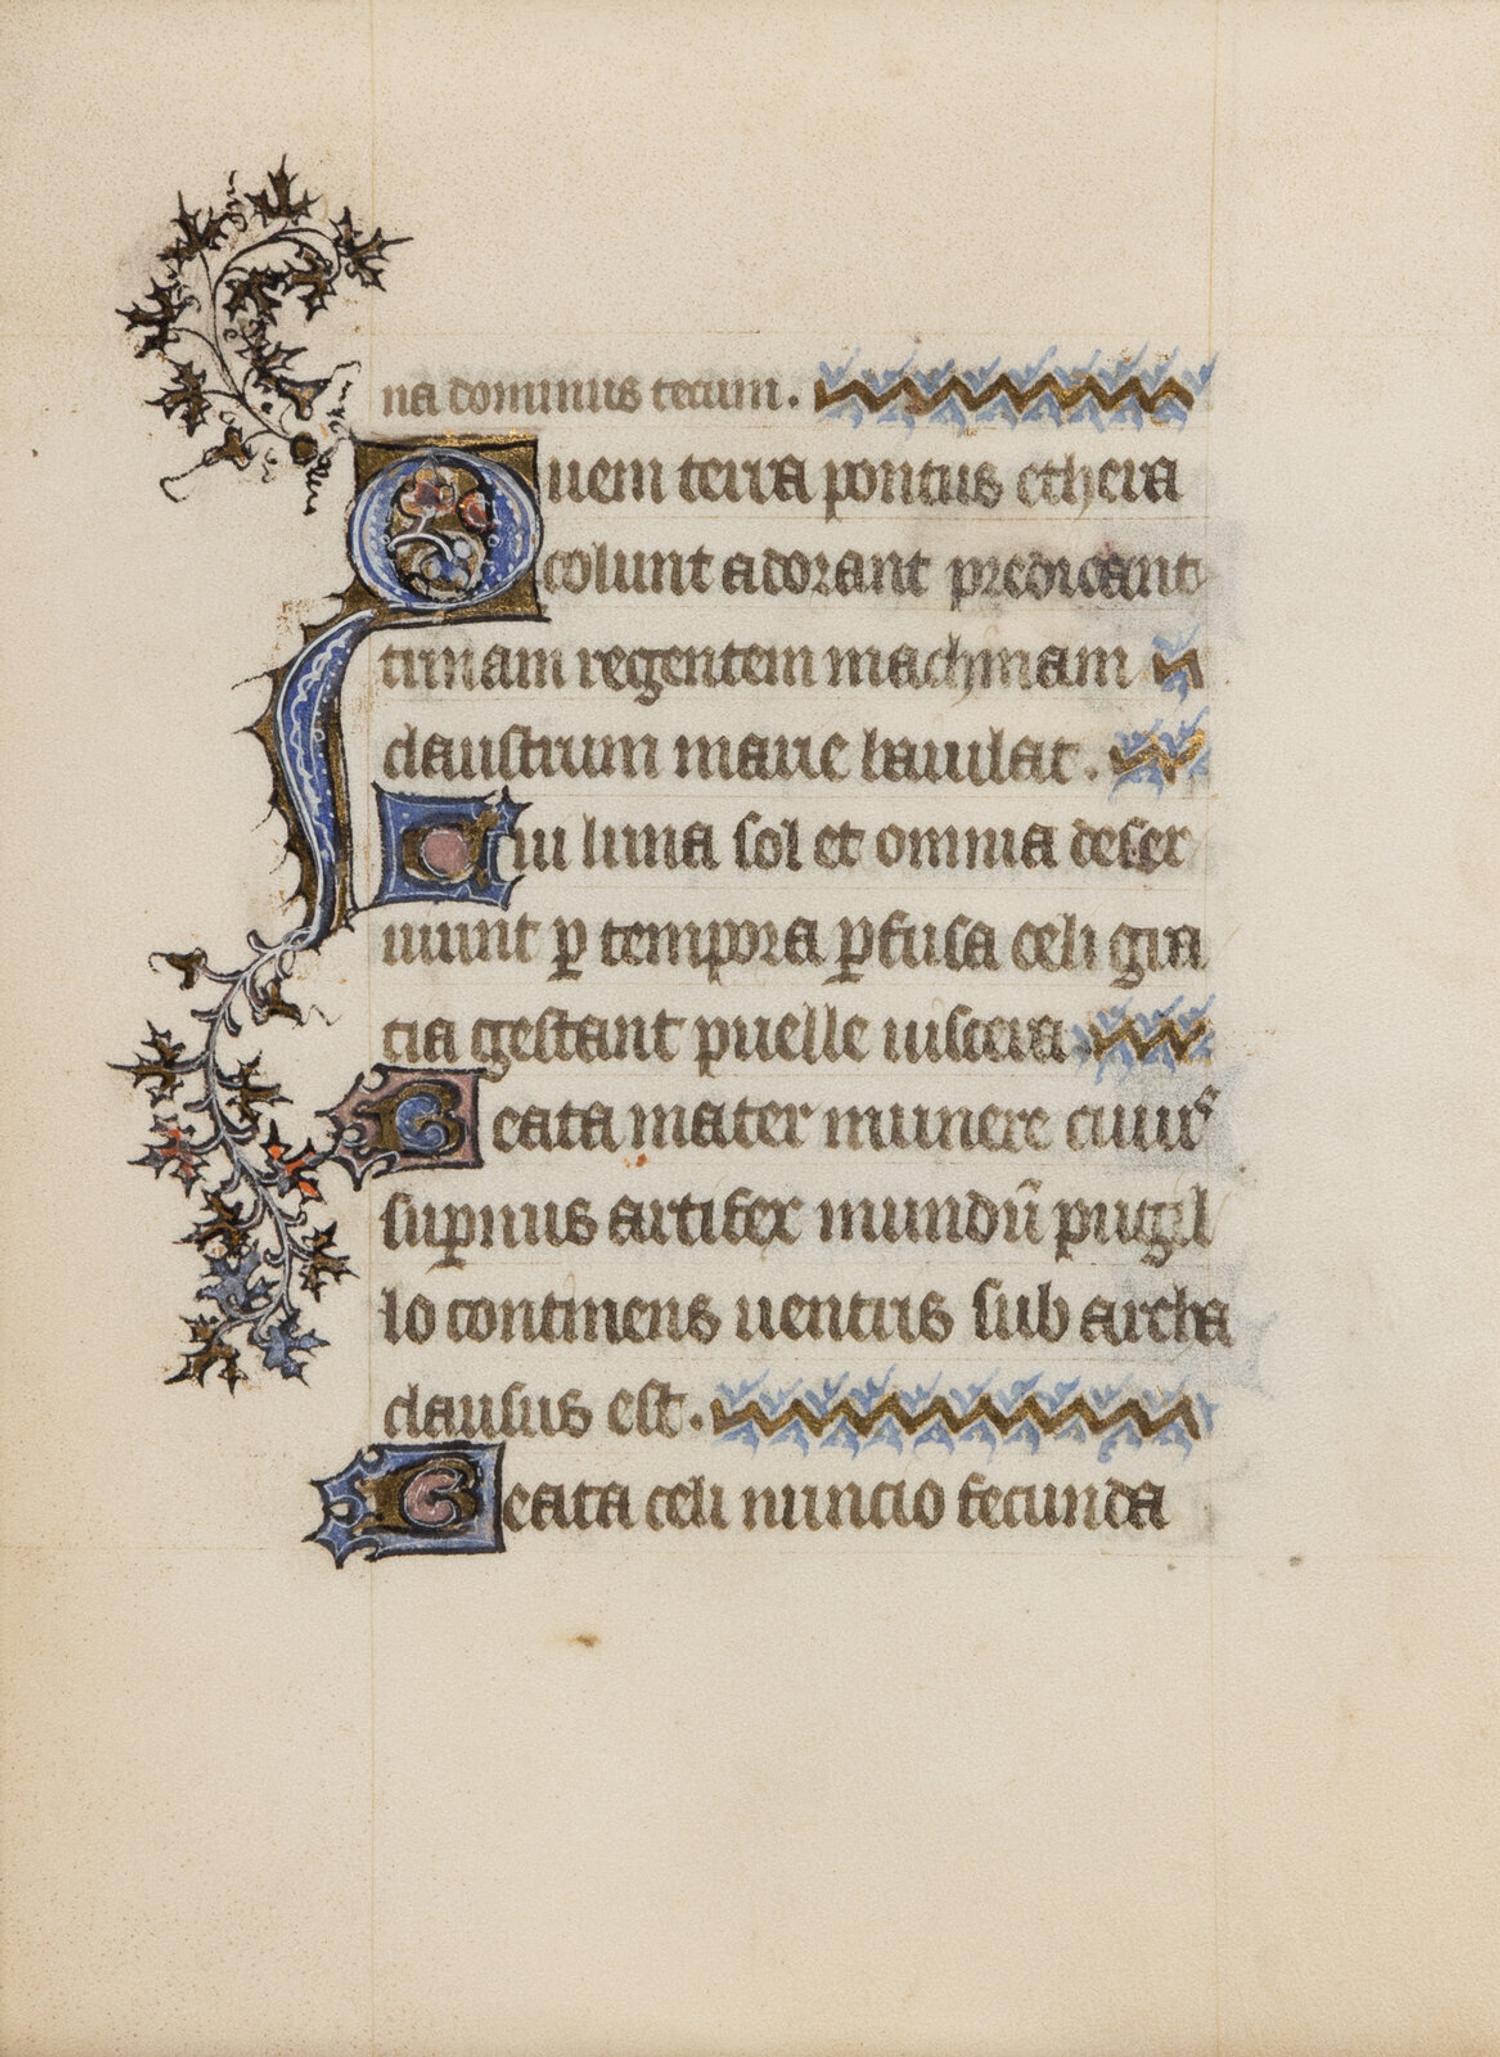 na dominus tecum.
Quem terra pontus ethera
colunt adorant predicant
trinam regentem machinam
claustrum marie baiulat.
Cui luna sol et omnia deser
uiunt ꝑ tempora ꝑfusa celi gra
tia gestant puelle uiscera
Beata mater munere cuiuꝰ
suꝑnus artifex mundū pugil
lo continens uentris sub archa
clausus est.
Beata celi nuncio fecunda